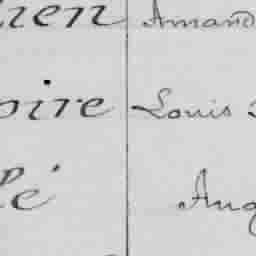 ien Amand
oire Louis
lé Aug